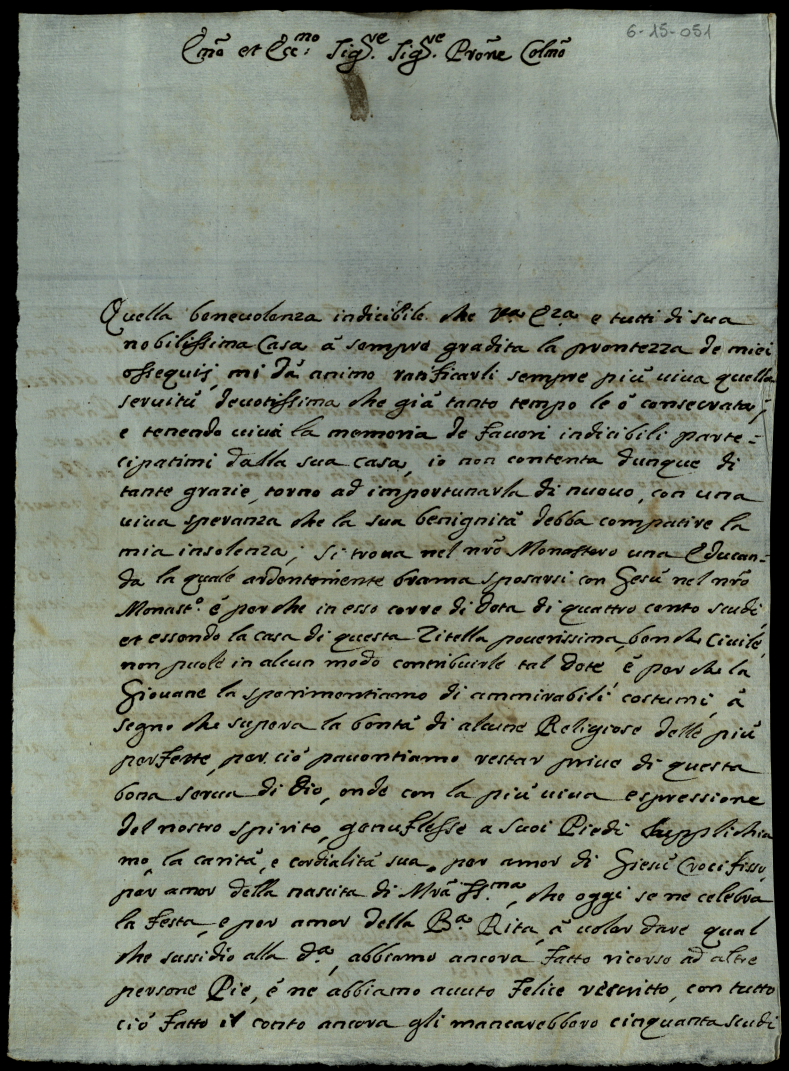 6-15-051
Emõ et Ecc:mo Sig.re Sig.re Prõne Colmõ
Quella beneuolenza indicibile che V.a Eza. e tutti di sua
nobilissima Casa à sempre gradita la prontezza de miei
ossequij, mi dà animo ratificarli sempre più uiua quella
seruitù deuotissima che già tanto tempo le ò consecrata,
e tenendo uiua la memoria de fauori indicibili parte=
cipatimi dalla sua casa, io non contenta dunque di
tante grazie, torno ad importunarla di nuouo, con una
uiua speranza che la sua benignità debba compatire la
mia insolenza; Si troua nel nrõ Monastero una Educan=
da la quale ardentemente brama sposarsi con Gesù nel nrõ
Monast.o è perche in esso corre di dota di quattro cento scudi,
et essendo la casa di questa Zitella pouerissima, ben che Ciuile,
non puole in alcun modo contribuirle tal dote, è per che la
Giouane la sperimentiamo di ammirabili costumi, à
segno che supera la bontà di alcune Religiose delle più
perfette, per ciò pauentiamo restar priue di questa
bona serua di Dio, onde con la più uiua espressione
del nostro spirito, genuflesse a suoi Piedi supplichia
mo, la carità, e cordialità sua, per amor di Giesù Crocifisso,
per amor della nascita di Mrã SS.ma, che oggi se ne celebra
la festa, e per amor della B.a Rita, à uoler dare qual
che sussidio alla d.a, abbiamo ancora fatto ricorso ad altre
persone Pie, è ne abbiamo auuto felice rescritto, con tutto
ciò fatto il conto ancora gli mancarebbero cinquanta scudi